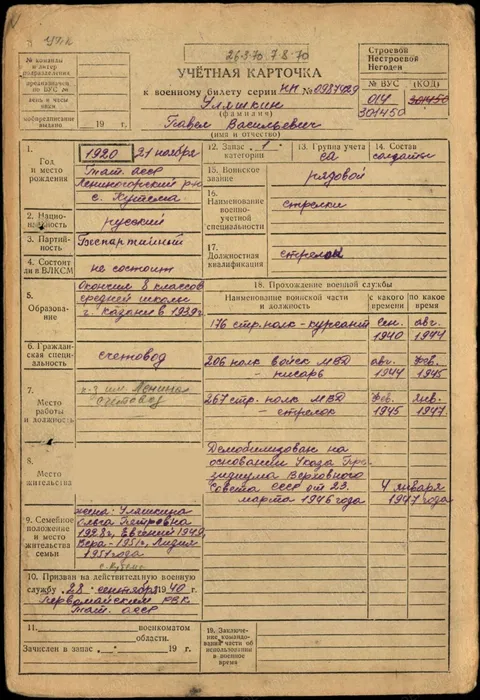 УПК
26.3.70 7.8.70
УЧЁТНАЯ КАРТОЧКА
к военному билету серии НП № 0987929
Уляшкин
(фамилия)
Павел Васильевич
(имя и отчество)
№ команды
и литер
подразделения
предназначен
по ВУС №
день и часы
явки
мобпредписание
выдано
19 г.
Строевой
Нестроевой
Негоден
№ ВУС (КОД)
014 301450
301450
1.
Год
и место
рождения
1920 21 ноября
Тат. асср
Лениногорский р-он
с. Кутема
2. Нацио-
нальность
русский
3. Партий-
ность
Беспартийный
4. Состоит
ли в ВЛКСМ
не состоит
5.
Образова-
ние
Окончил 8 классов
средней школы
г. Казани в 1939г.
6. Граждан-
ская специ-
альность
счетовод
7.
Место
работы
и должность
к-з им. Ленина
счетовод
8.
Место
жительства
9. Семейное
положение и
место
жительства
семьи
жена: Уляшкина
Ольга Петровна
1928г, Евгений 1949,
Вера-1951г, Лидия
1957года
с. Кутема
10. Призван на действительную военную
службу „28" сентября 1940 г.
Первомайским РВК
Тат. асср
11. военкоматом
области.
Зачислен в запас „ " 19 г.
12. Запас 1
категории
13. Группа учета
СА
14. Состав
солдаты
15. Воинское
звание
рядовой
16.
Наименование
военно-
учетной
специальности
стрелки
17.
Должностная
квалификация
стрелок
18. Прохождение военной службы
Наименование воинской части
и должность
с какого
времени
по какое
время
176 стр. полк - курсант
сен.
1940
авг.
1944
206 полк войск МВД
- писарь
авг.
1944
фев.
1945
267 стр. полк МВД
- стрелок
фев.
1945
янв.
1947
Демобилизован на
основании Указа Пре-
зидиума Верховного
Совета ссср от 23.
марта 1946 года
4 января
1947 года
19. Заключе-
ние командо-
вания части об
использовании
в военное
время